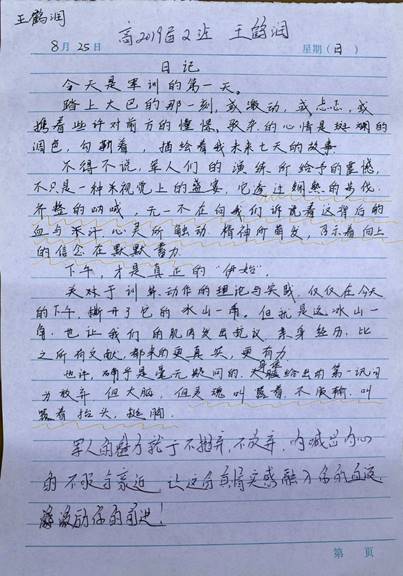 王鹤润
高2019届2班 王鹤润
8月25日 星期(日)
日记
今天是军训的第一天。
踏上大巴的那一刻,或激动,或忐忑,或
携着些许对前方的憧憬。歌杂的心情是斑斓的
润色,勾勒着,描绘着我未来七天的故事
不得不说,军人们的演练所给予的震憾,
不只是一种来视觉上的盛宴,它透过娴熟的步伐
齐整的呐喊,无一不在向我们诉说着这背后的
血与汗心灵所触动精神所萌发,了示着向上
的信念在默默奋力
下午,才是真正的“伊始”。
关对于训练动作的理论与实践,仅仅在今天
的下午,撕开了它的冰山一角。但就是这冰山一
角,也让我们的肌肉发出抗议亲身经历,比
之所有文献,都来的更真实,更有力
也许,确乎是毫无疑问的,大脑给出的第一讯问
为放弃但大脑,但灵魂叫嚣着不质疑,叫
嚣着抬头,挺胸
军人的魅力就于不抛弃,不放弃,内
的不 让这 融入你的血液
激励你的前进!
第 页